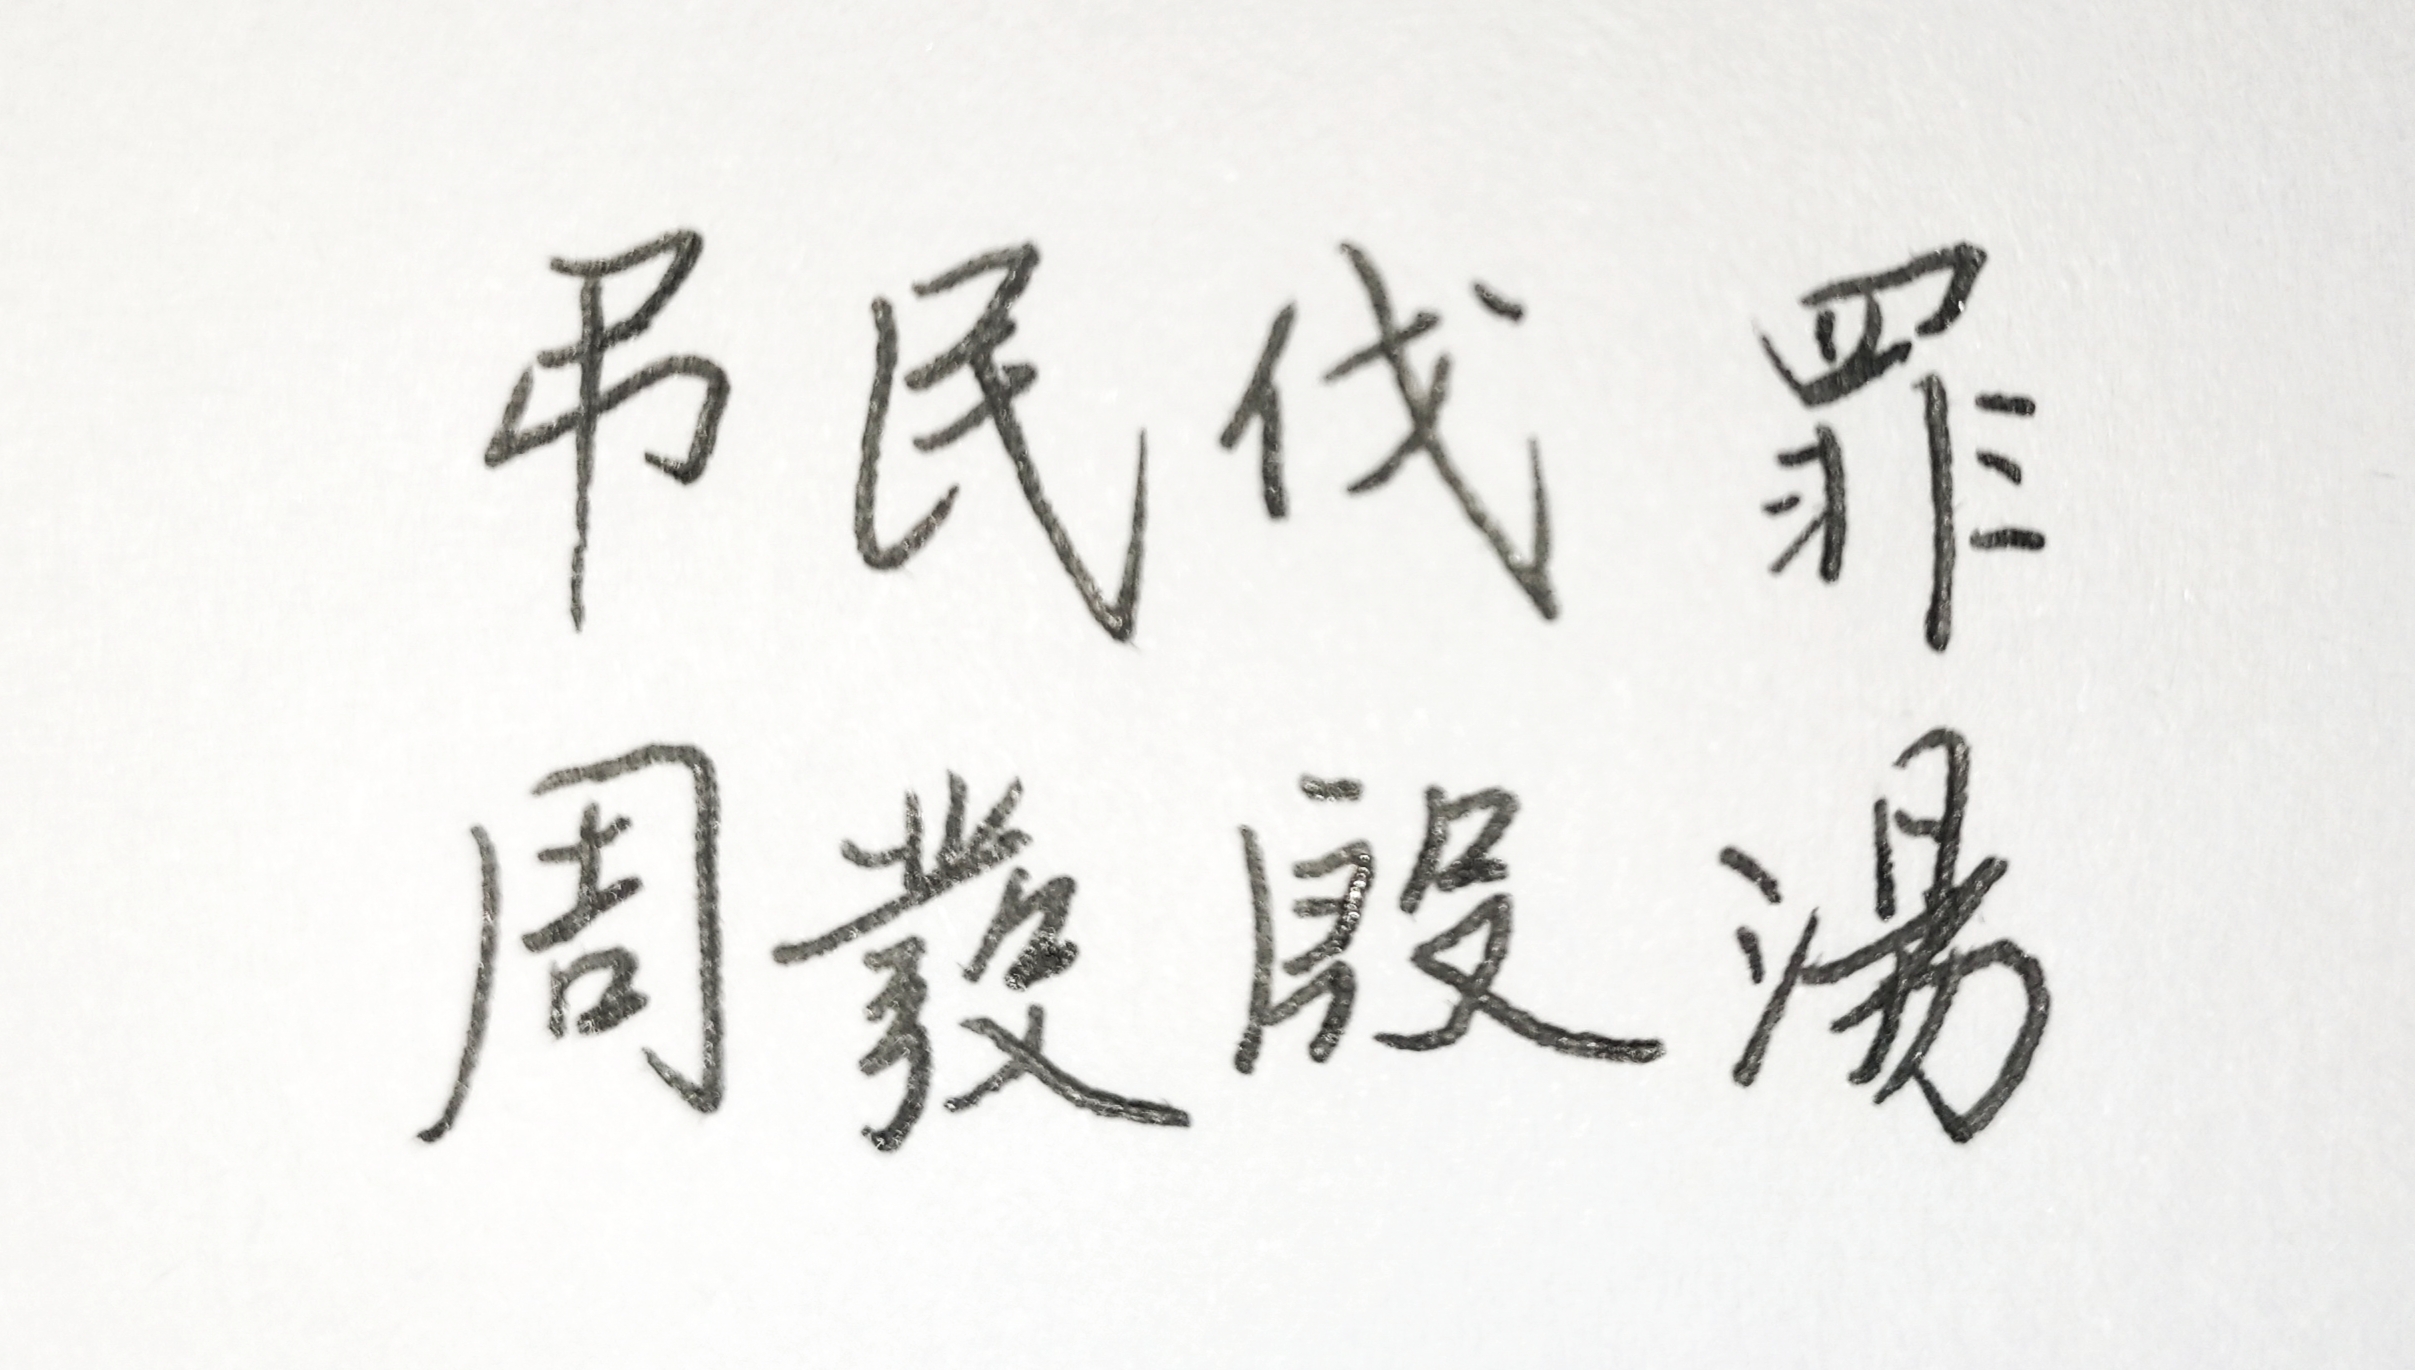 弔民伐罪
周發殷湯